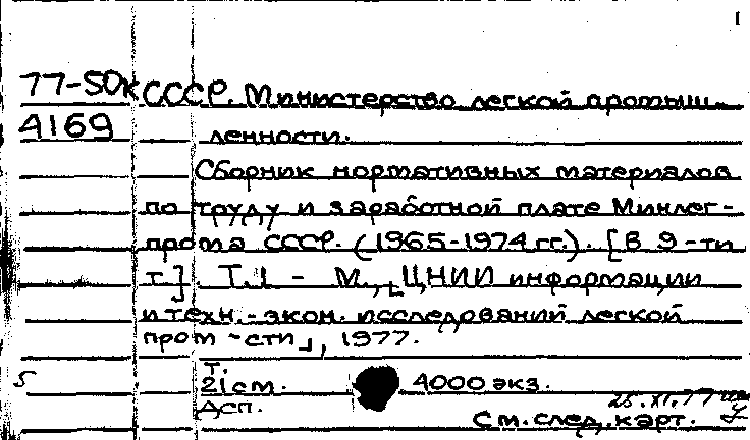 1
77-50к СССР. Министерство легкой промыш-
4169 ленности.
Сборник нормативных материалов
по труду и заработной плате Минлег-
прома СССР. (1965-1974 гг.). [В 9-ти
т.] Т.1 - М., [ЦНИИ информации
и техн.-экон. исследований легкой
пром-сти], 1977.
т.
5 21 см. 4000 экз.
Дсп. 25.XI.77
См. след. карт.